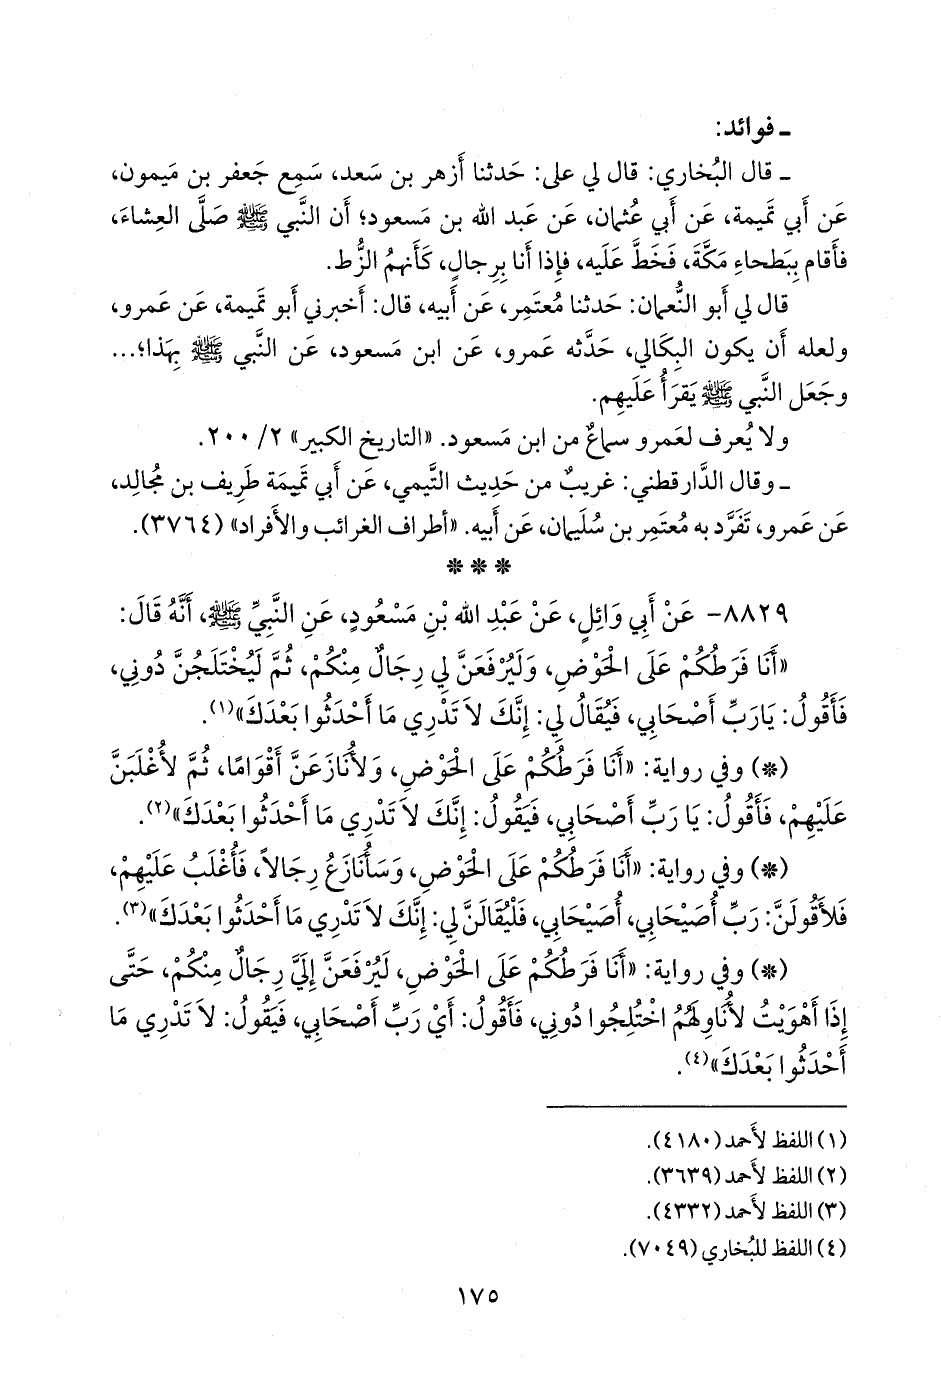 ـ فوائد:
ـ قال البُخاري: قال لي علي: حَدثنا أَزهر بن سَعد، سَمِع جَعفر بن مَيمون،
عَن أَبي تَميمة، عَن أَبي عُثمان، عَن عَبد الله بن مَسعود؛ أَن النَّبي ﷺ صَلَّى العِشاءَ،
فأَقام بِبَطحاءِ مَكَّةَ، فَخَطَّ عَلَيه، فإِذا أَنا بِرِجالٍ، كَأَنهمُ الزُّط.
قال لي أَبو النُّعمان: حَدثنا مُعتَمِر، عَن أَبيه، قال: أَخبرني أَبو تَميمة، عَن عَمرو،
ولعله أَن يكون البِكَالي، حَدَّثه عَمرو، عَن ابن مَسعود، عَن النَّبي ﷺ بِهَذا؛...
وجَعَل النَّبي ﷺ يَقرَأُ عَلَيهِم.
ولا يُعرف لعَمرو سماعٌ من ابن مَسعود. «التاريخ الكبير» ٢/ ٢٠٠.
ـ وقال الدَّارقطني: غريبٌ من حَدِيث التَّيمي، عَن أَبي تَمِيمَة طَرِيف بن مُجالِد،
عَن عَمرو، تَفَرَّد به مُعتَمِر بن سُلَيمان، عَن أَبيه. «أطراف الغرائب والأَفراد» (٣٧٦٤).
* * *
٨٨٢٩- عَنْ أَبِي وَائِلٍ، عَنْ عَبْدِ الله بْنِ مَسْعُودٍ، عَنِ النَّبِيِّ ﷺ، أَنَّهُ قَالَ:
«أَنَا فَرَطُكُمْ عَلَى الْحَوْضِ، وَلَيُرْفَعَنَّ لِي رِجَالٌ مِنْكُمْ، ثُمَّ لَيُخْتَلَجُنَّ دُونِي،
فَأَقُولُ: يَارَبِّ أَصْحَابِي، فَيُقَالُ لِي: إِنَّكَ لاَ تَدْرِي مَا أَحْدَثُوا بَعْدَكَ»(١).
(*) وفي رواية: «أَنَا فَرَطُكُمْ عَلَى الْحَوْضِ، وَلأُنَازَعَنَّ أَقْوَامًا، ثُمَّ لأُغْلَبَنَّ
عَلَيْهِمْ، فَأَقُولُ: يَا رَبِّ أَصْحَابِي، فَيَقُولُ: إِنَّكَ لاَ تَدْرِي مَا أَحْدَثُوا بَعْدَكَ»(٢).
(*) وفي رواية: «أَنَا فَرَطُكُمْ عَلَى الْحَوْضِ، وَسَأُنَازَعُ رِجَالاً، فَأُغْلَبُ عَلَيْهِمْ،
فَلأَقُولَنَّ: رَبِّ أُصَيْحَابِي، أُصَيْحَابِي، فَلَيُقَالَنَّ لِي: إِنَّكَ لاَ تَدْرِي مَا أَحْدَثُوا بَعْدَكَ»(٣).
(*) وفي رواية: «أَنَا فَرَطُكُمْ عَلَى الْحَوْضِ، لَيُرْفَعَنَّ إِلَيَّ رِجَالٌ مِنْكُمْ، حَتَّى
إِذَا أَهْوَيْتُ لأُنَاوِلَهُمُ اخْتُلِجُوا دُونِي، فَأَقُولُ: أَيْ رَبِّ أَصْحَابِي، فَيَقُولُ: لاَ تَدْرِي مَا
أَحْدَثُوا بَعْدَكَ»(٤).
(١) اللفظ لأَحمد (٤١٨٠).
(٢) اللفظ لأَحمد (٣٦٣٩).
(٣) اللفظ لأَحمد (٤٣٣٢).
(٤) اللفظ للبُخاري (٧٠٤٩).
١٧٥